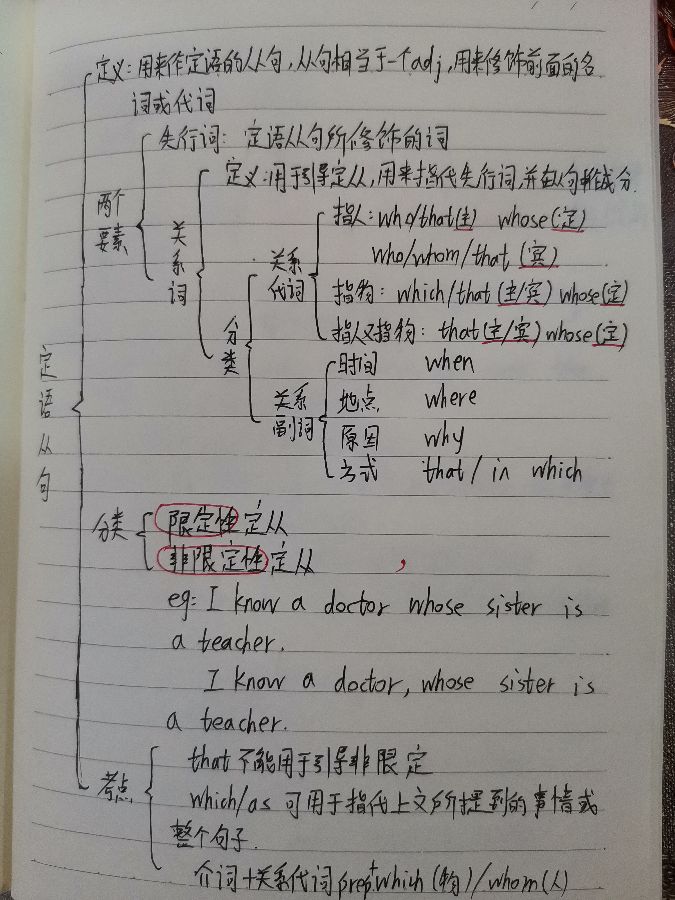 定义：用来作定语的从句，从句相当于一个adj，用来修饰前面的名
词或代词
先行词：定语从句所修饰的词
两个
要素
关系词
定义：用于引导定从，用来指代先行词，并在从句中作成分.
分类
关系
代词
指人：who/that(主) whose(定)
who/whom/that (宾)
指物：which/that(主/宾) whose(定)
指人又指物：that(主/宾) whose(定)
关系
副词
时间 when
地点 where
原因 why
方式 that / in which
定语从句
分类
限定性定从
非限定性定从 ，
eg: I know a doctor whose sister is
a teacher.
I know a doctor, whose sister is
a teacher.
考点
that 不能用于引导非限定
which/as 可用于指代上文所提到的事情或
整个句子.
介词+关系代词 prep+which (物) / whom(人)